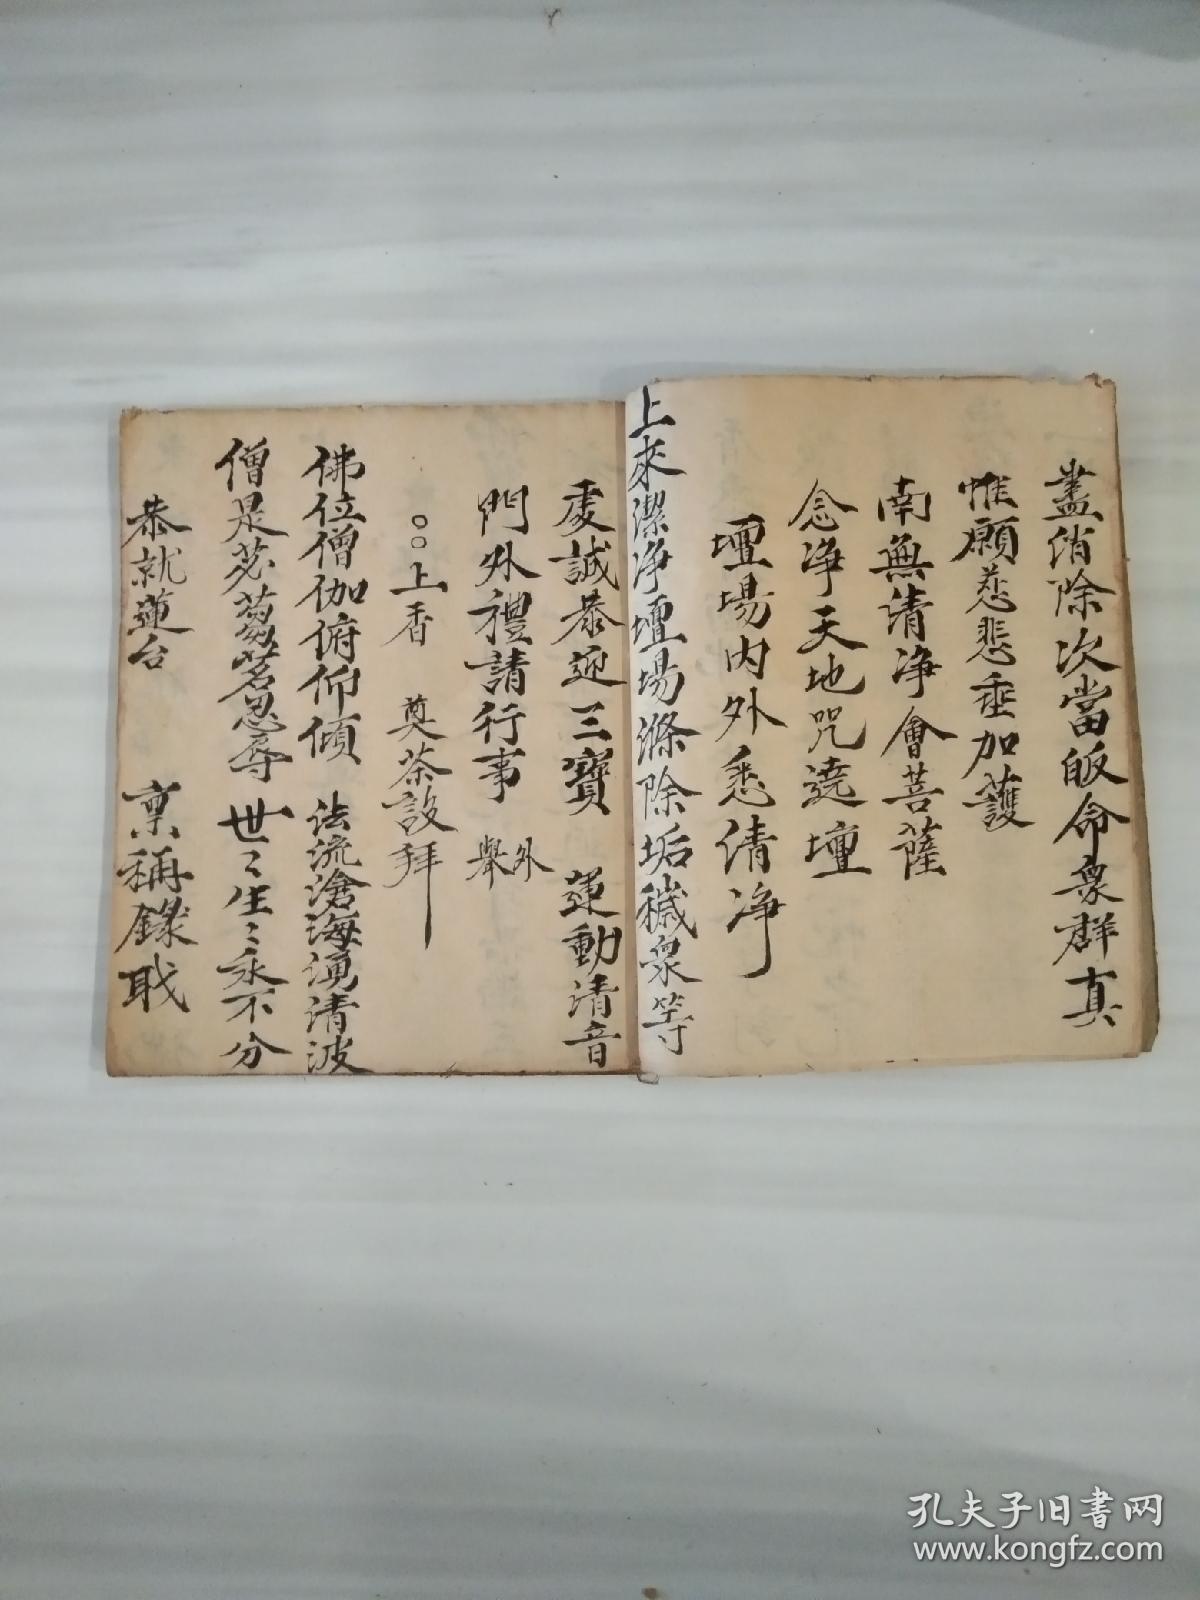 盡消除次當皈命衆群真
惟願慈悲垂加護
南無清淨會菩薩
念净天地咒遶壇
壇場内外悉清净
上來潔净壇場滌除垢穢衆等
虔誠恭迎三寳 運動清音
門外禮請行事 外舉
○○上香 奠茶設拜
佛位僧伽俯仰傾 法流滄海湧清波
僧是苾蒭名忍辱 世〻生〻永不分
恭就蓮台 禀稱錄职
孔夫子旧书网
www.kongfz.com